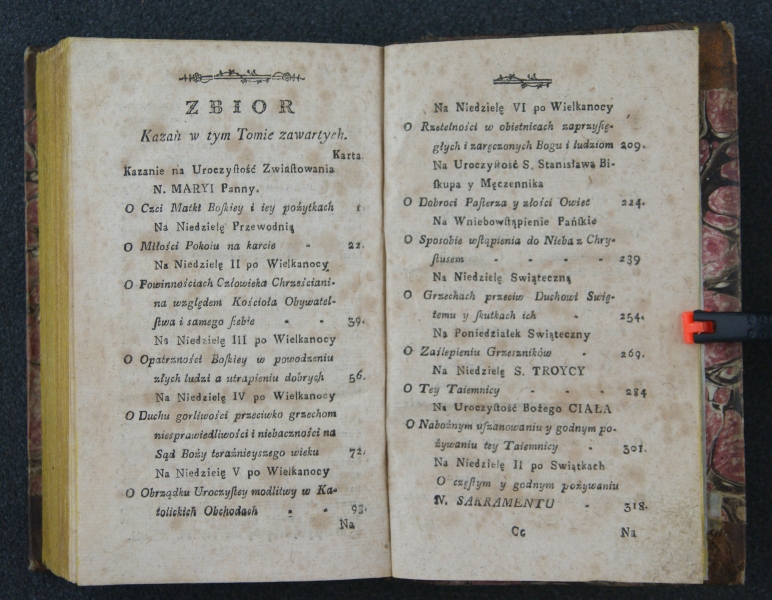 ZBIOR
Kazań w tym Tomie zawartych.
Karta.
Kazanie na Uroczyſtość Zwiaſtowania
N. MARYI Panny.
O Czci Matki Boſkiey i iey pożytkach 1.
Na Niedzielę Przewodnią
O Miłości Pokoiu na karcie - 22.
Na Niedzielę II po Wielkanocy
O Powinnościach Człowieka Chrześciani-
na względem Kościoła Obywatel-
ſtwa i samego ſiebie - - 39.
Na Niedzielę III po Wielkanocy
O Opatrzności Boſkiey w powodzeniu
złych ludzi a utrapieniu dobrych 56.
Na Niedzielę IV po Wielkanocy
O Duchu gorliwości przeciwko grzechom
niesprawiedliwości i niebaczności na
Sąd Boży teraźnieyszego wieku 72.
Na Niedzielę V po Wielkanocy
O Obrządku Uroczyſtey modlitwy w Ka-
tolickich Obchodach - - 93.
Na
Na Niedzielę VI po Wielkanocy
O Rzetelności w obietnicach zaprzyſię-
głych i zaręczonych Bogu i ludziom 209.
Na Uroczyſtość S. Stanisława Bi-
ſkupa y Męczennika
O Dobroci Paſterza y złości Owiec 224.
Na Wniebowſtąpienie Pańſkie
O Sposobie wſtąpienia do Nieba z Chry-
ſtusem - - - - 239
Na Niedzielę Swiąteczną
O Grzechach przeciw Duchowi Swię-
temu y ſkutkach ich - - 254.
Na Poniedziałek Swiąteczny
O Zaślepieniu Grzeszników - 269.
Na Niedzielę S. TROYCY
O Tey Taiemnicy - - - 284
Na Uroczyſtość Bożego CIAŁA
O Nabożnym uſzanowaniu y godnym po-
żywaniu tey Taiemnicy - 301.
Na Niedzielę II po Swiątkach
O częſtym y godnym pożywaniu
N. SAKRAMENTU - 318.
Cc Na